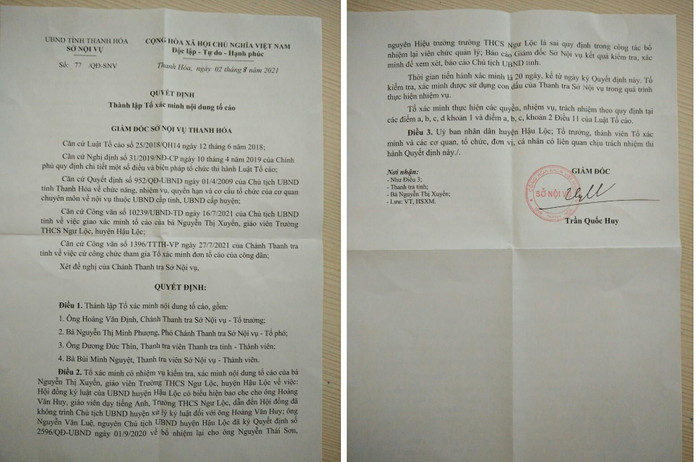 UBND TỈNH THANH HÓA
SỞ NỘI VỤ
Số: 77 /QĐ-SNV
CỘNG HÒA XÃ HỘI CHỦ NGHĨA VIỆT NAM
Độc lập - Tự do - Hạnh phúc
Thanh Hóa, ngày 02 tháng 8 năm 2021
QUYẾT ĐỊNH
Thành lập Tổ xác minh nội dung tố cáo
GIÁM ĐỐC SỞ NỘI VỤ THANH HÓA
Căn cứ Luật Tố cáo số 25/2018/QH14 ngày 12 tháng 6 năm 2018;
Căn cứ Nghị định số 31/2019/NĐ-CP ngày 10 tháng 4 năm 2019 của Chính
phủ quy định chi tiết một số điều và biện pháp tổ chức thi hành Luật Tố cáo;
Căn cứ Quyết định số 952/QĐ-UBND ngày 01/4/2009 của Chủ tịch UBND
tỉnh Thanh Hóa về chức năng, nhiệm vụ, quyền hạn và cơ cấu tổ chức của cơ quan
chuyên môn về nội vụ thuộc UBND cấp tỉnh, UBND cấp huyện;
Căn cứ Công văn số 10239/UBND-TD ngày 16/7/2021 của Chủ tịch UBND
tỉnh về việc giao xác minh tố cáo của bà Nguyễn Thị Xuyến, giáo viên Trường
THCS Ngư Lộc, huyện Hậu Lộc;
Căn cứ Công văn số 1396/TTTH-VP ngày 27/7/2021 của Chánh Thanh tra
tỉnh về việc cử công chức tham gia Tổ xác minh đơn tố cáo của công dân;
Xét đề nghị của Chánh Thanh tra Sở Nội vụ,
QUYẾT ĐỊNH:
Điều 1. Thành lập Tổ xác minh nội dung tố cáo, gồm:
1. Ông Hoàng Văn Định, Chánh Thanh tra Sở Nội vụ - Tổ trưởng;
2. Bà Nguyễn Thị Minh Phượng, Phó Chánh Thanh tra Sở Nội vụ - Tổ phó;
3. Ông Dương Đức Thìn, Thanh tra viên Thanh tra tỉnh - Thành viên;
4. Bà Bùi Minh Nguyệt, Thanh tra viên Sở Nội vụ - Thành viên.
Điều 2. Tổ xác minh có nhiệm vụ kiểm tra, xác minh nội dung tố cáo của bà
Nguyễn Thị Xuyến, giáo viên Trường THCS Ngư Lộc, huyện Hậu Lộc về việc:
Hội đồng kỷ luật của UBND huyện Hậu Lộc có biểu hiện bao che cho ông Hoàng
Văn Huy, giáo viên dạy tiếng Anh, Trường THCS Ngư Lộc, dẫn đến Hội đồng đã
không trình Chủ tịch UBND huyện xử lý kỷ luật đối với ông Hoàng Văn Huy; ông
Nguyễn Văn Luệ, nguyên Chủ tịch UBND huyện Hậu Lộc đã ký Quyết định số
2596/QĐ-UBND ngày 01/9/2020 về bổ nhiệm lại cho ông Nguyễn Thái Sơn,
nguyên Hiệu trưởng trường THCS Ngư Lộc là sai quy định trong công tác bổ
nhiệm lại viên chức quản lý; Báo cáo Giám đốc Sở Nội vụ kết quả kiểm tra, xác
minh để xem xét, báo cáo Chủ tịch UBND tỉnh.
Thời gian tiến hành xác minh là 20 ngày, kể từ ngày ký Quyết định này. Tổ
kiểm tra, xác minh được sử dụng con dấu của Thanh tra Sở Nội vụ trong quá trình
thực hiện nhiệm vụ.
Tổ xác minh thực hiện các quyền, nhiệm vụ, trách nhiệm theo quy định tại
các điểm a, b, c, d khoản 1 và điểm a, b, c, khoản 2 Điều 11 của Luật Tố cáo.
Điều 3. Uỷ ban nhân dân huyện Hậu Lộc; Tổ trưởng, thành viên Tổ xác
minh và các cơ quan, tổ chức, đơn vị, cá nhân có liên quan chịu trách nhiệm thi
hành Quyết định này./.
Nơi nhận:
- Như Điều 3;
- Thanh tra tỉnh;
- Bà Nguyễn Thị Xuyến;
- Lưu: VT, HSXM.
GIÁM ĐỐC
SỞ NỘI VỤ
Trần Quốc Huy